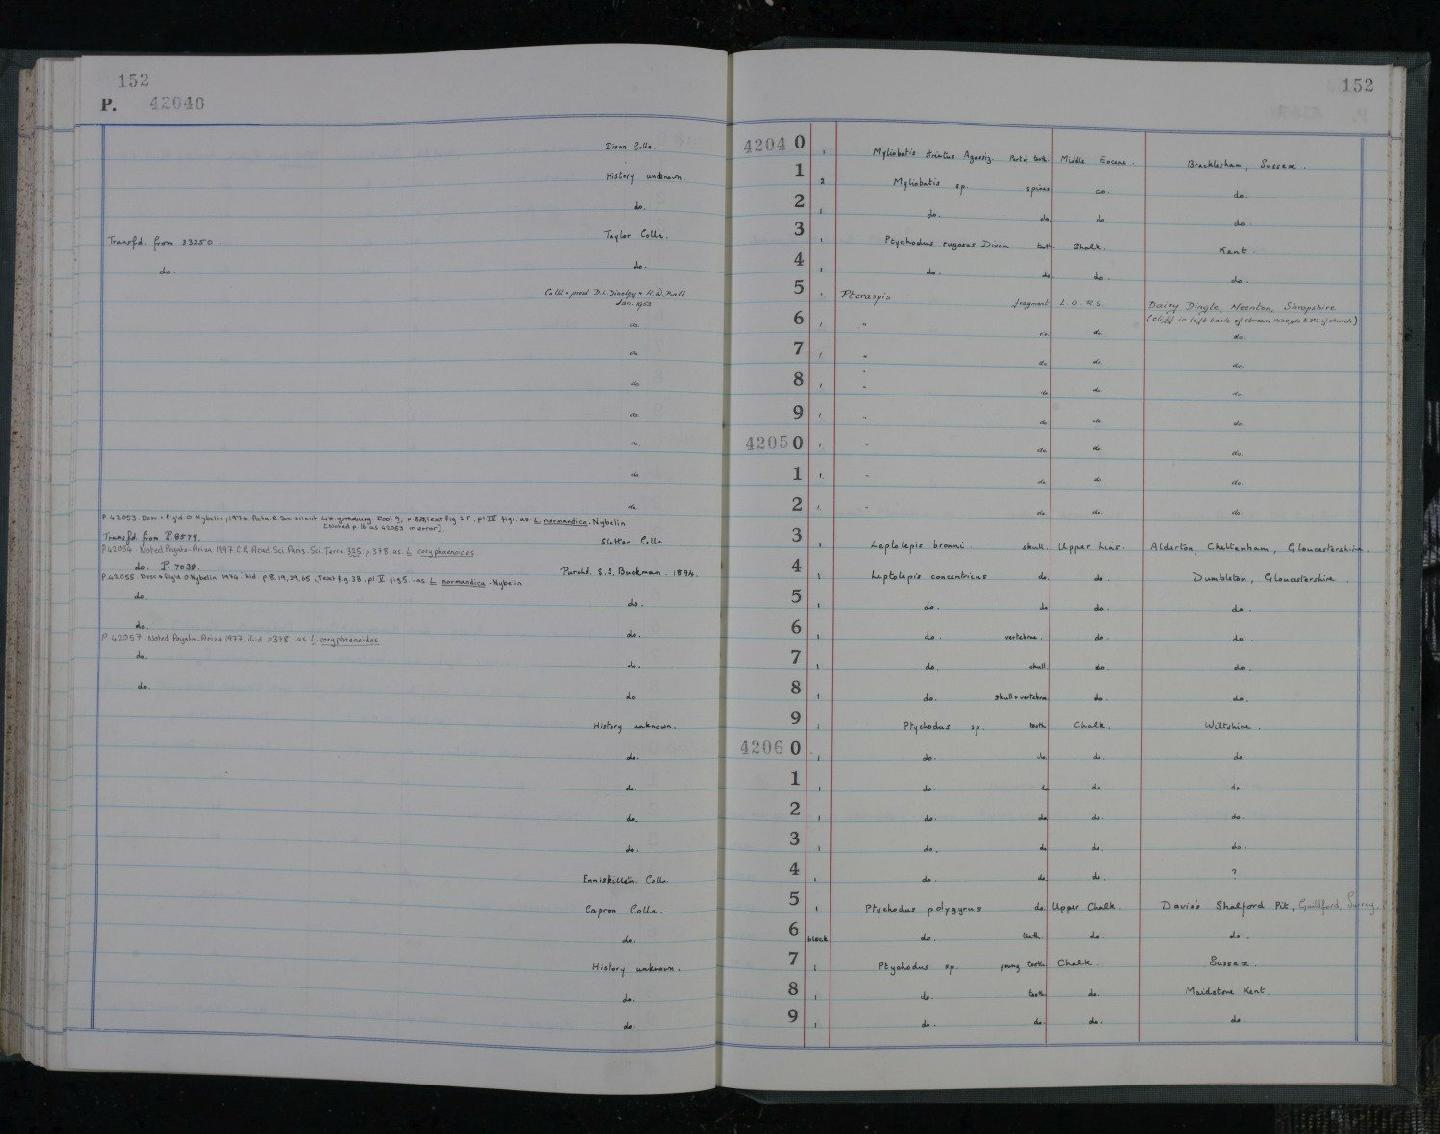 152
P. 42040
152
Dixon Colln. 42040 1 Myliobatis striatus Agassiz. Part of tooth Middle Eocene. Bracklesham, Sussex.
History unknown. 1 2 Myliobatis sp. spines do. do.
do. 2 1 do. do. do do.
Transfd. from 33250 Taylor Colln. 3 1 Ptychodus rugosus Dixon tooth Chalk. Kent.
do. do. 4 1 do. do. do. do.
Colld & presd D.L. Dineley & H.W. Ball 5 1 Pteraspis fragment L.O.R.S. Dairy Dingle, Neenton, Shropshire
do. 6 1 " do. do. do.
do. 7 1 " do. do. do.
do 8 1 " do. do. do.
do. 9 1 " do. do. do.
" 42050 1 " do. do. do.
do 1 1 " do. do. do.
do. 2 " do. do. do.
P 42053 Desc & figd O Nybelin, 1974. text fig 25, pl IV fig 1. as L. normandica. Nybelin
[Noted p. 16 as 42083 in error].
Transfd. from P. 8579. Slatter Colln. 3 1 Leptolepis bronni. skull Upper Lias. Alderton, Cheltenham, Gloucestershire.
P 42054. Noted Poyato-Ariza 1997 C.R. Acad. Sci. Paris. Sci. Terre 325 p378 as L. coryphaenoides
do. P 7038. Purchd. S.S. Buckman. 1894. 4 1 Leptolepis concentricus do. do. Dumbleton, Gloucestershire.
P. 42055 Desc & figd O Nybelin 1974. ibid p 8, 19, 29, 65, Text fig 38, pl V fig 5. as L. normandica. Nybelin
do. do. 5 1 do. do do. do.
do. do. 6 1 do. vertebrae. do. do.
P 42057 Noted Poyato-Ariza 1997 ibid p378 as L. coryphaenoides
do. do. 7 1 do. skull do. do.
do. do 8 1 do. skull + vertebrae do. do.
History unknown. 9 1 Ptychodus sp. tooth Chalk. Wiltshire.
do. 42060 1 do. do. do. do
do. 1 1 do do. do. do
do. 2 1 do. do do. do.
do. 3 1 do. do do. do.
Enniskillen Colln. 4 1 do. do do. ?
Capron Colln. 5 1 Ptychodus polygyrus do. Upper Chalk. Davis's Shalford Pit, Guildford, Surrey.
do. 6 block do. teeth. do. do.
History unknown. 7 1 Ptychodus sp. young tooth Chalk. Sussex.
do. 8 1 do. tooth do. Maidstone Kent.
do. 9 1 do. do. do. do